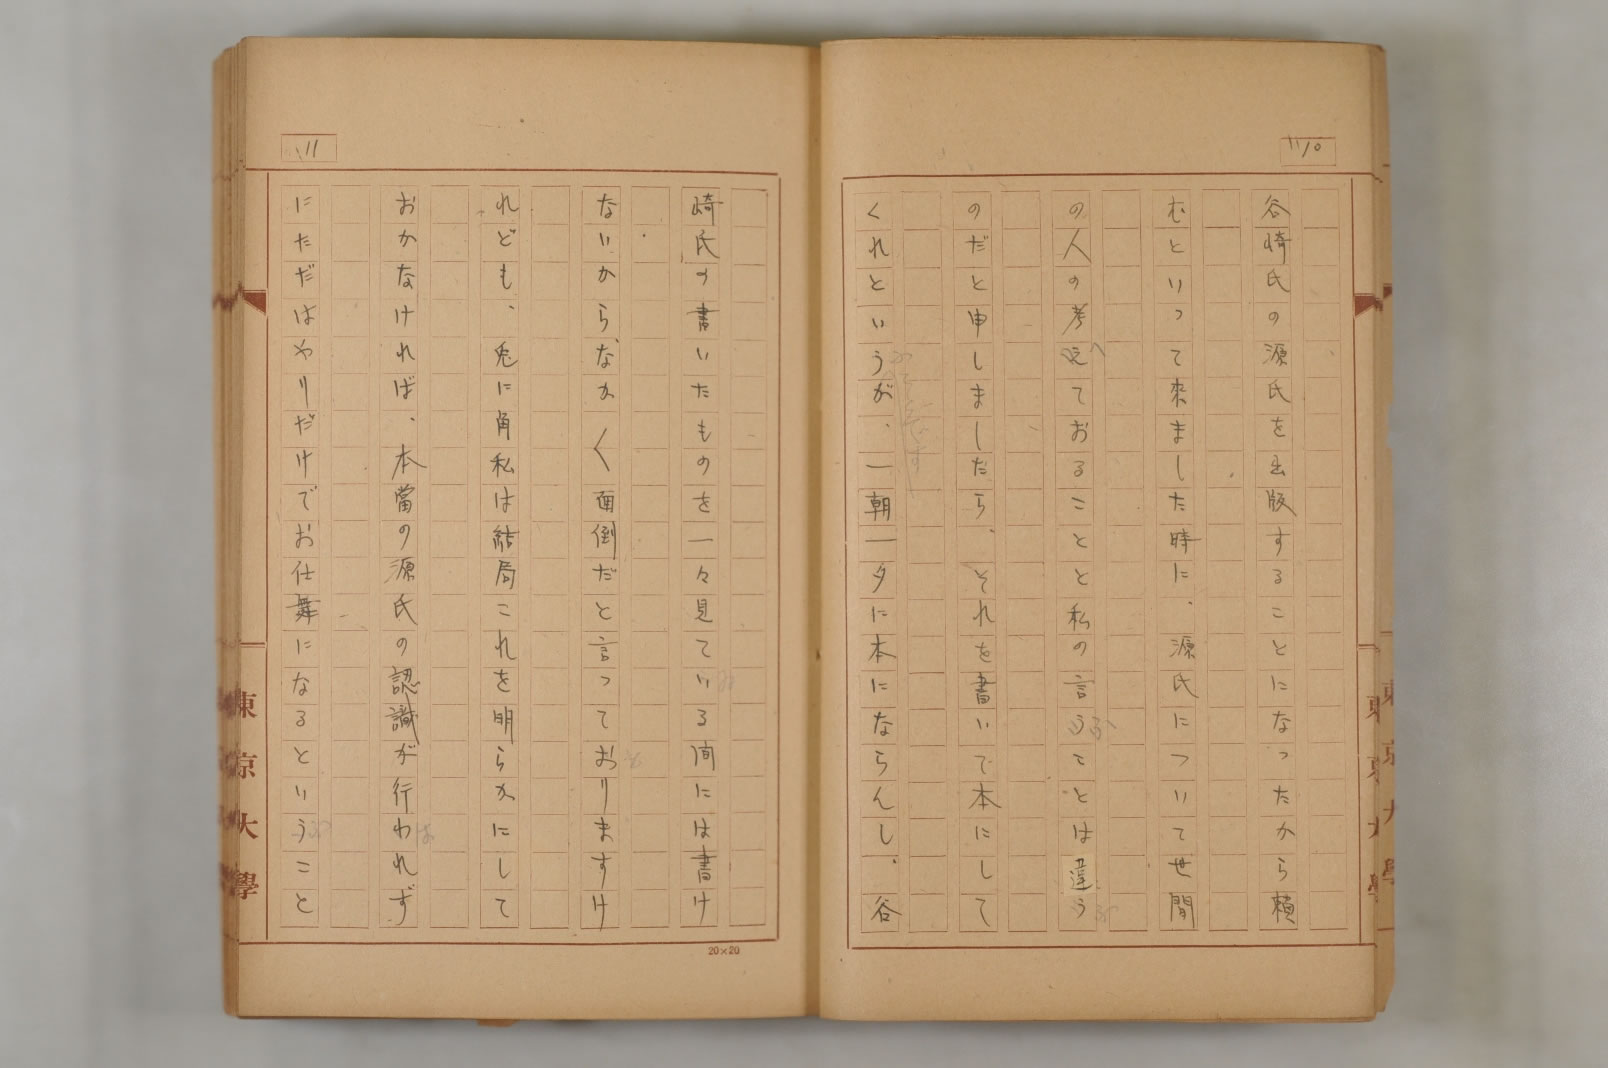 110
谷崎氏の源氏を出版することになったから頼
むといって来ました時に、源氏について世間
の人の考えておることと私の言うことは違う
のだと申しましたら、それを書いで本にして
くれというが、一朝一夕に本にならんし、谷
東京大學
111
崎氏の書いたものを一々見ている間には書け
ないからなかく面倒だと言っておりますけ
れども、兎に角私は結局これを明らかにして
おかなければ、本當の源氏の認識が行われず
にただはやりだけでお仕舞になるということ
東京大學
20×20